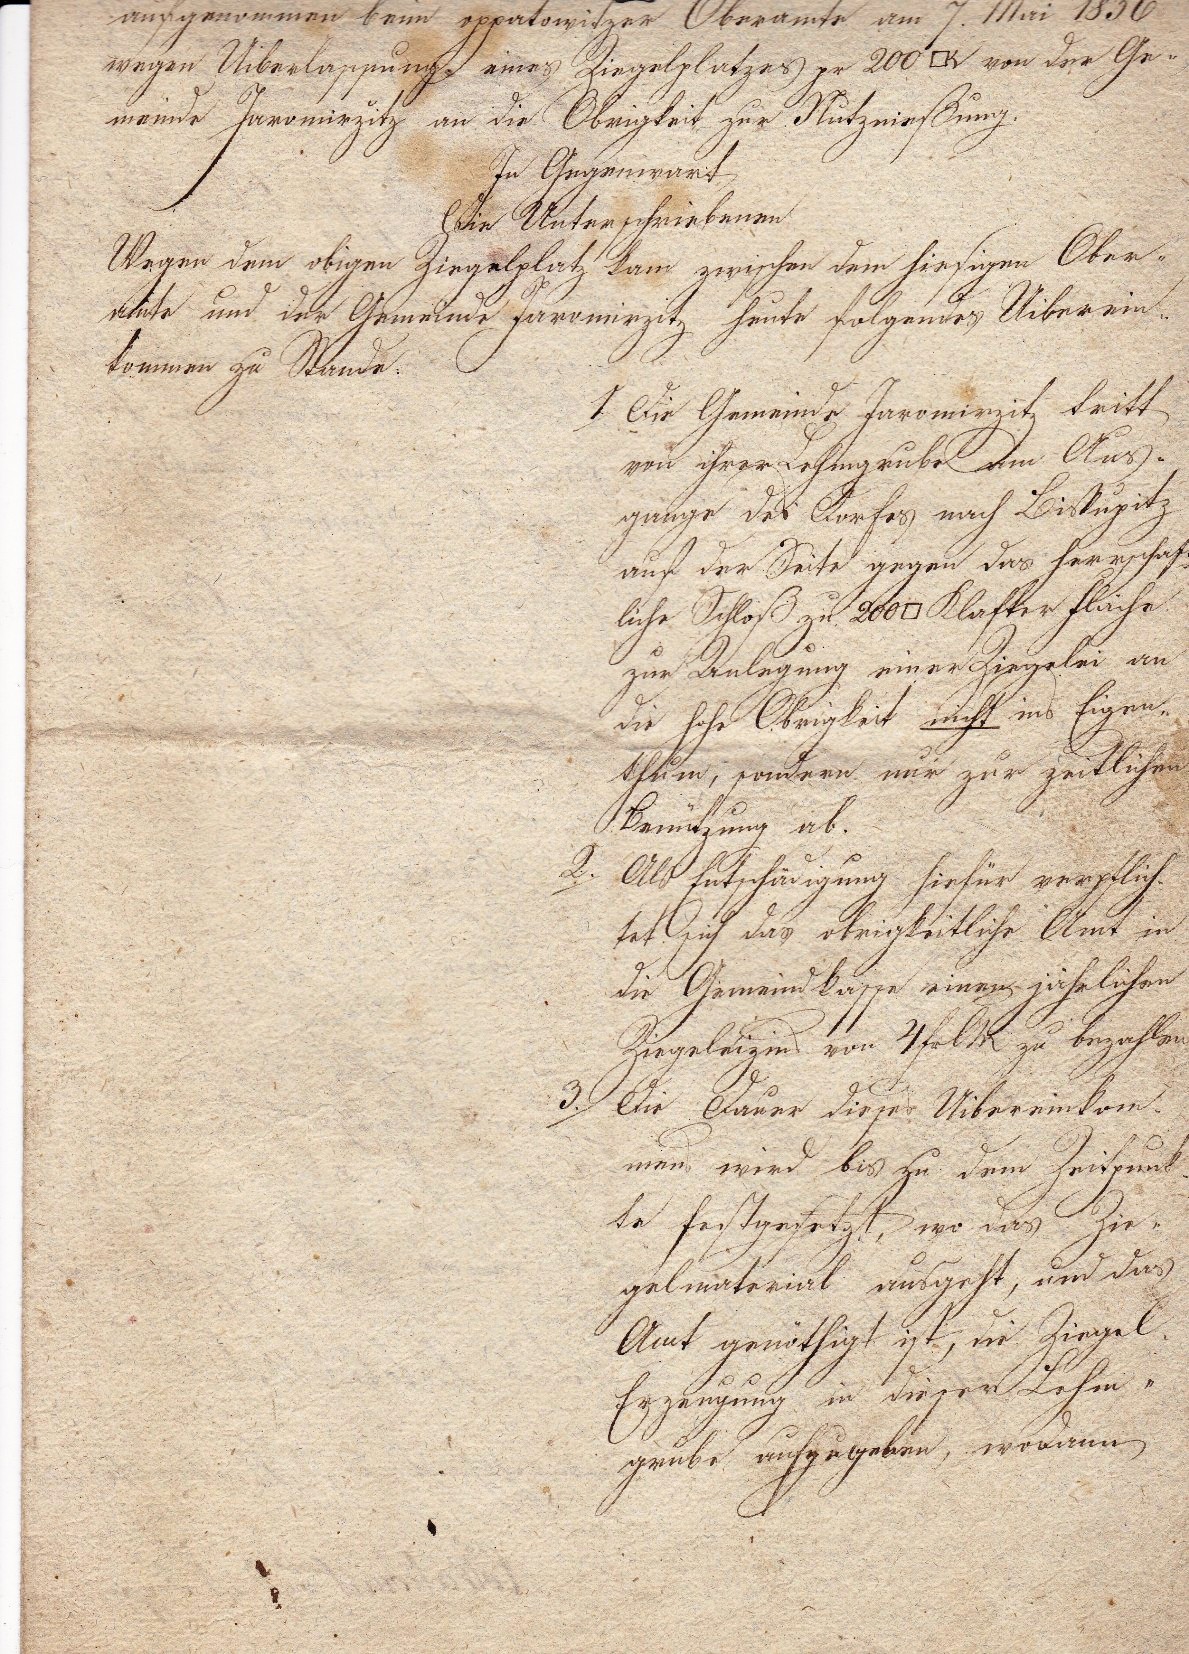 aufgenommen beim oppatowitzer Oberamte am 7. Mai 1836
wegen Uiberlassung eines Ziegelplatzes pr 200 □K von der Ge-
meinde Jaromirzitz an die Obrigkeit zur Nutznießung.
In Gegenwart
Die Unterschriebenen
Wegen dem obigen Ziegelplatz kam zwischen dem hiesigen Ober-
amte und der Gemeinde Jaromirzitz heute folgendes Uiberein-
kommen zu Stande.
1. Die Gemeinde Jaromirzitz tritt
von ihrer Lehmgrube am Aus-
gange des Dorfes nach Biskupitz
auf der Seite gegen das herrschaft-
liche Schloß zu 200 □ Klafter Fläche
zur Anlegung einer Ziegelei an
die hohe Obrigkeit nicht ins Eigen-
thum, sondern nur zur zeitlichen
Benützung ab.
2. Als Entschädigung hiefür verpflich-
tet sich das obrigkeitliche Amt in
die Gemeindkasse einen jährlichen
Ziegeleizins von 4 fr CM zu bezahlen
3. Die Dauer dieses Uibereinkom-
mens wird bis zu dem Zeitpunk-
te festgesetzt, wo das Zie-
gelmaterial ausgeht, und das
Amt genöthigt ist, die Ziegel-
Erzeugung in dieser Lehm-
grube aufzugeben, wodann